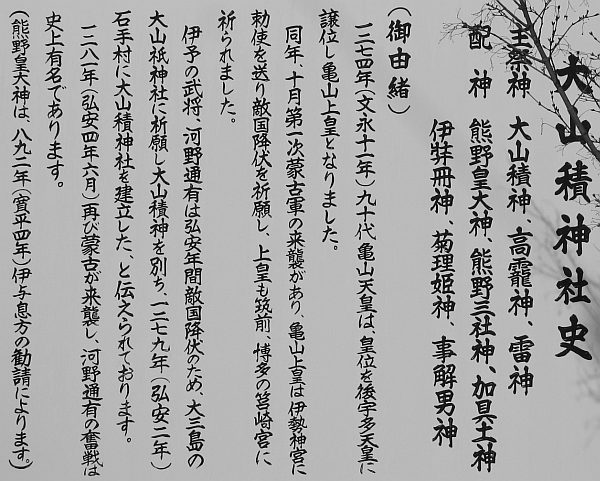 大山積神社史
主祭神　大山積神、高靇神、雷神
配　神　熊野皇大神、熊野三社神、加具土神
伊弉冊神、菊理姫神、事解男神
（御由緒）
一二七四年（文永十一年）九十代亀山天皇は、皇位を後宇多天皇に
譲位し亀山上皇となりました。
同年、十月第一次蒙古軍の来襲があり、亀山上皇は伊勢神宮に
勅使を送り敵国降伏を祈願し、上皇も筑前、博多の筥崎宮に
祈られました。
伊予の武将、河野通有は弘安年間敵国降伏のため、大三島の
大山祇神社に祈願し大山積神を別ち、一二七九年（弘安二年）
石手村に大山積神社を建立した、と伝えられております。
一二八一年（弘安四年六月）再び蒙古が来襲し、河野通有の奮戦は
史上有名であります。
（熊野皇大神は、八九二年（寛平四年）伊与息方の勧請によります。）